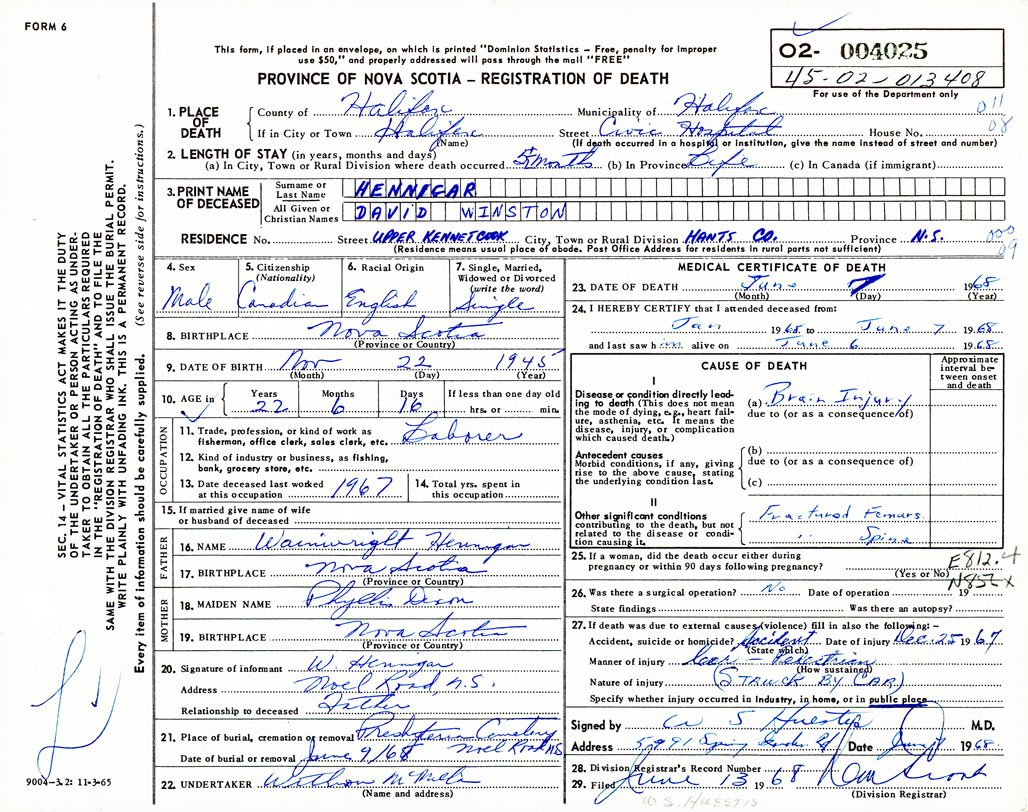 FORM 6
This form, if placed in an envelope, on which is printed "Dominion Statistics – Free, penalty for improper
use $50," and properly addressed will pass through the mail "FREE"
PROVINCE OF NOVA SCOTIA – REGISTRATION OF DEATH
02- 004025
45-02-013408
For use of the Department only
SEC. 14 – VITAL STATISTICS ACT MAKES IT THE DUTY
OF THE UNDERTAKER OR PERSON ACTING AS UNDER-
TAKER TO OBTAIN ALL THE PARTICULARS REQUIRED
IN THE "REGISTRATION OF DEATH" AND TO FILE THE
SAME WITH THE DIVISION REGISTRAR WHO SHALL ISSUE THE BURIAL PERMIT.
WRITE PLAINLY WITH UNFADING INK. THIS IS A PERMANENT RECORD.
Every item of information should be carefully supplied. (See reverse side for instructions.)
1. PLACE OF DEATH
County of Halifax Municipality of Halifax 011
If in City or Town Halifax Street Civic Hospital House No. 08
(Name) (If death occurred in a hospital or institution, give the name instead of street and number)
2. LENGTH OF STAY (in years, months and days)
(a) In City, Town or Rural Division where death occurred 5 month (b) In Province Life (c) In Canada (if immigrant)
3. PRINT NAME OF DECEASED
Surname or Last Name HENNIGAR
All Given or Christian Names DAVID WINSTON
RESIDENCE No. Street UPPER KENNETCOOK City, Town or Rural Division HANTS CO. Province N.S. 000
09
(Residence means usual place of abode. Post Office Address for residents in rural parts not sufficient)
4. Sex Male
5. Citizenship (Nationality) Canadian
6. Racial Origin English
7. Single, Married, Widowed or Divorced (write the word) Single
8. BIRTHPLACE Nova Scotia
(Province or Country)
9. DATE OF BIRTH Nov 22 1945
(Month) (Day) (Year)
10. AGE in Years 22 Months 6 Days 16 If less than one day old hrs. or min.
OCCUPATION
11. Trade, profession, or kind of work as fisherman, office clerk, sales clerk, etc. Laborer
12. Kind of industry or business, as fishing, bank, grocery store, etc.
13. Date deceased last worked at this occupation 1967
14. Total yrs. spent in this occupation
15. If married give name of wife or husband of deceased
FATHER
16. NAME Wainwright Hennigar
17. BIRTHPLACE Nova Scotia
(Province or Country)
MOTHER
18. MAIDEN NAME Phyllis Dixon
19. BIRTHPLACE Nova Scotia
(Province or Country)
20. Signature of informant W. Hennigar
Address Noel Road, N.S.
Relationship to deceased Father
21. Place of burial, cremation or removal Presbyterian Cemetery
Noel Road N.S.
Date of burial or removal June 9/68
22. UNDERTAKER
(Name and address)
9004–3.2: 11-3-65
MEDICAL CERTIFICATE OF DEATH
23. DATE OF DEATH June 7 1968
(Month) (Day) (Year)
24. I HEREBY CERTIFY that I attended deceased from:
Jan 1968 to June 7 1968
and last saw him alive on June 6 1968
CAUSE OF DEATH
Approximate interval between onset and death
I
Disease or condition directly leading to death (This does not mean the mode of dying, e.g., heart failure, asthenia, etc. It means the disease, injury, or complication which caused death.)
(a) Brain Injury
due to (or as a consequence of)
Antecedent causes
Morbid conditions, if any, giving rise to the above cause, stating the underlying condition last.
(b)
due to (or as a consequence of)
(c)
II
Other significant conditions contributing to the death, but not related to the disease or condition causing it.
Fractured Femurs
" Spine
25. If a woman, did the death occur either during
pregnancy or within 90 days following pregnancy?
(Yes or No)
E812.4
26. Was there a surgical operation? No Date of operation 19
State findings Was there an autopsy?
27. If death was due to external causes (violence) fill in also the following: –
Accident, suicide or homicide? Accident Date of injury Dec. 25 1967
(State which)
Manner of injury Car – Pedestrian
(How sustained)
Nature of injury (STRUCK BY CAR)
Specify whether injury occurred in Industry, in home, or in public place
Signed by W S Huestis M.D.
Address 5991 Spring Garden Rd Date June 7 1968
28. Division Registrar's Record Number
29. Filed June 13 1968
(Division Registrar)
W S HUESTIS